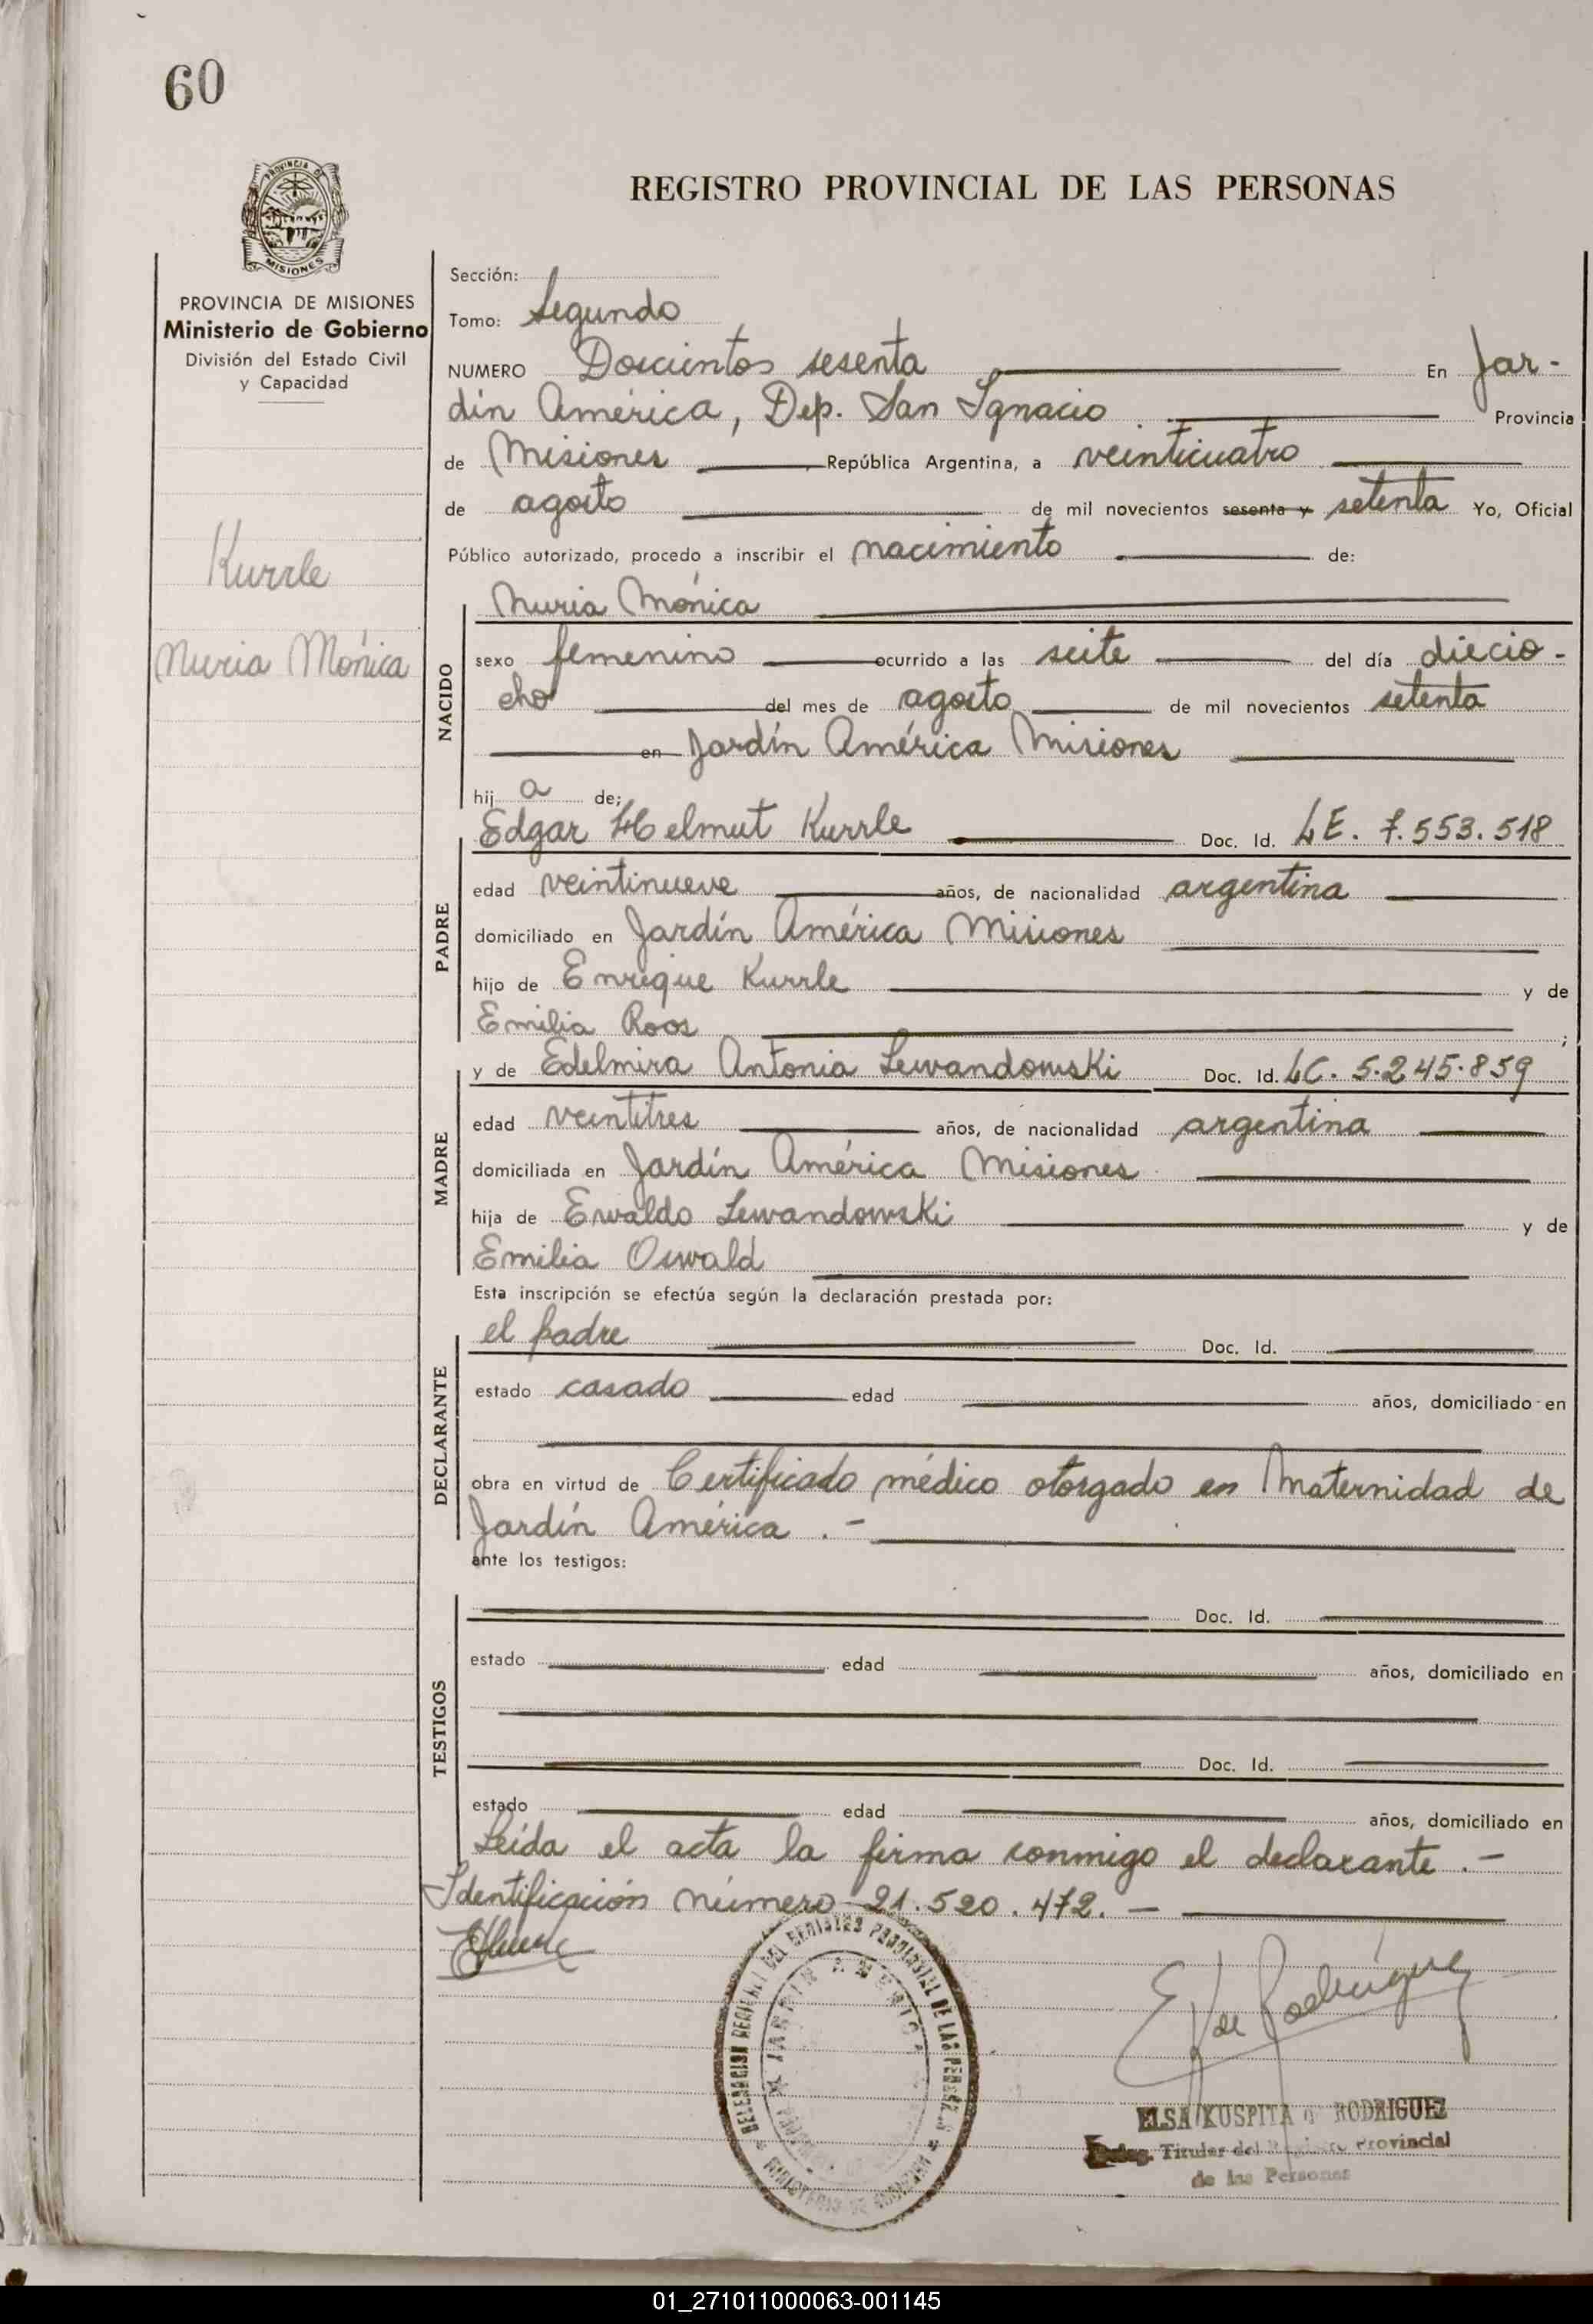 60
PROVINCIA DE
MISIONES
REGISTRO PROVINCIAL DE LAS PERSONAS
PROVINCIA DE MISIONES
Ministerio de Gobierno
División del Estado Civil
y Capacidad
Kurrle
Nuria Mónica
Sección:
Tomo: Segundo
NUMERO Doscientos sesenta En Jar-
dín América, Dep. San Ignacio Provincia
de Misiones República Argentina, a veinticuatro
de agosto de mil novecientos sesenta y setenta Yo, Oficial
Público autorizado, procedo a inscribir el nacimiento de:
Nuria Mónica
NACIDO
sexo femenino ocurrido a las seite del día diecio-
cho del mes de agosto de mil novecientos setenta
en Jardín América Misiones
hij a de:
Edgar Helmut Kurrle Doc. Id. LE. 7.553.518
PADRE
edad veintinueve años, de nacionalidad argentina
domiciliado en Jardín América Misiones
hijo de Enrique Kurrle y de
Emilia Roos ;
y de Edelmira Antonia Lewandowski Doc. Id. LC. 5.245.859
MADRE
edad veintitres años, de nacionalidad argentina
domiciliada en Jardín América Misiones
hija de Ewaldo Lewandowski y de
Emilia Oswald
Esta inscripción se efectúa según la declaración prestada por:
el padre Doc. Id.
DECLARANTE
estado casado edad años, domiciliado en
obra en virtud de Certificado médico otorgado en Maternidad de
Jardín América .-
ante los testigos:
TESTIGOS
Doc. Id.
estado edad años, domiciliado en
Doc. Id.
estado edad años, domiciliado en
Leída el acta la firma conmigo el declarante .-
Identificación número 21.520.472. -
DELEGACION REGIONAL DEL REGISTRO PROVINCIAL DE LAS PERSONAS
JARDIN AMERICA
MINISTERIO DE GOBIERNO
E K de Rodríguez
ELSA KUSPITA d RODRIGUEZ
Deleg. Titular del Registro Provincial
de las Personas
01_271011000063-001145